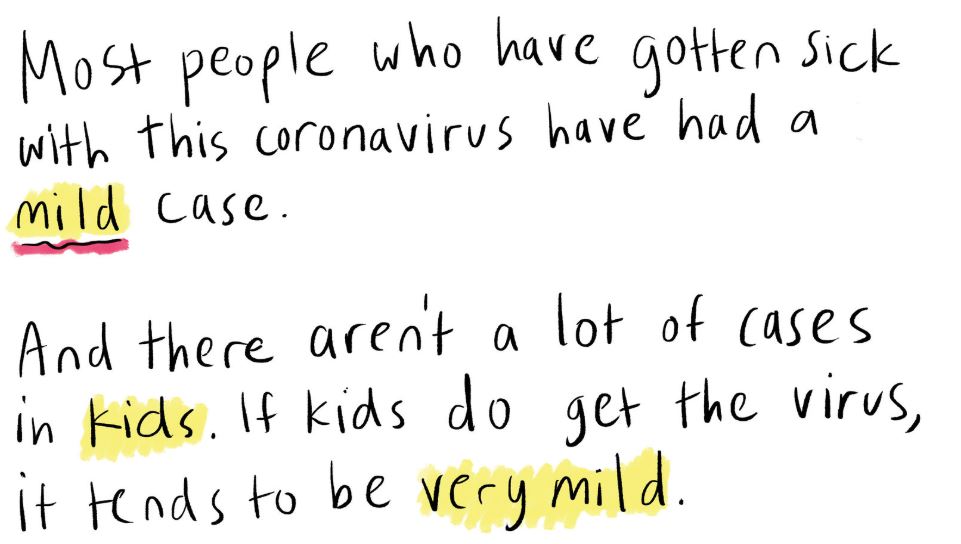 Most people who have gotten sick
with this coronavirus have had a
mild case.
And there aren't a lot of cases
in kids. If kids do get the virus,
it tends to be very mild.